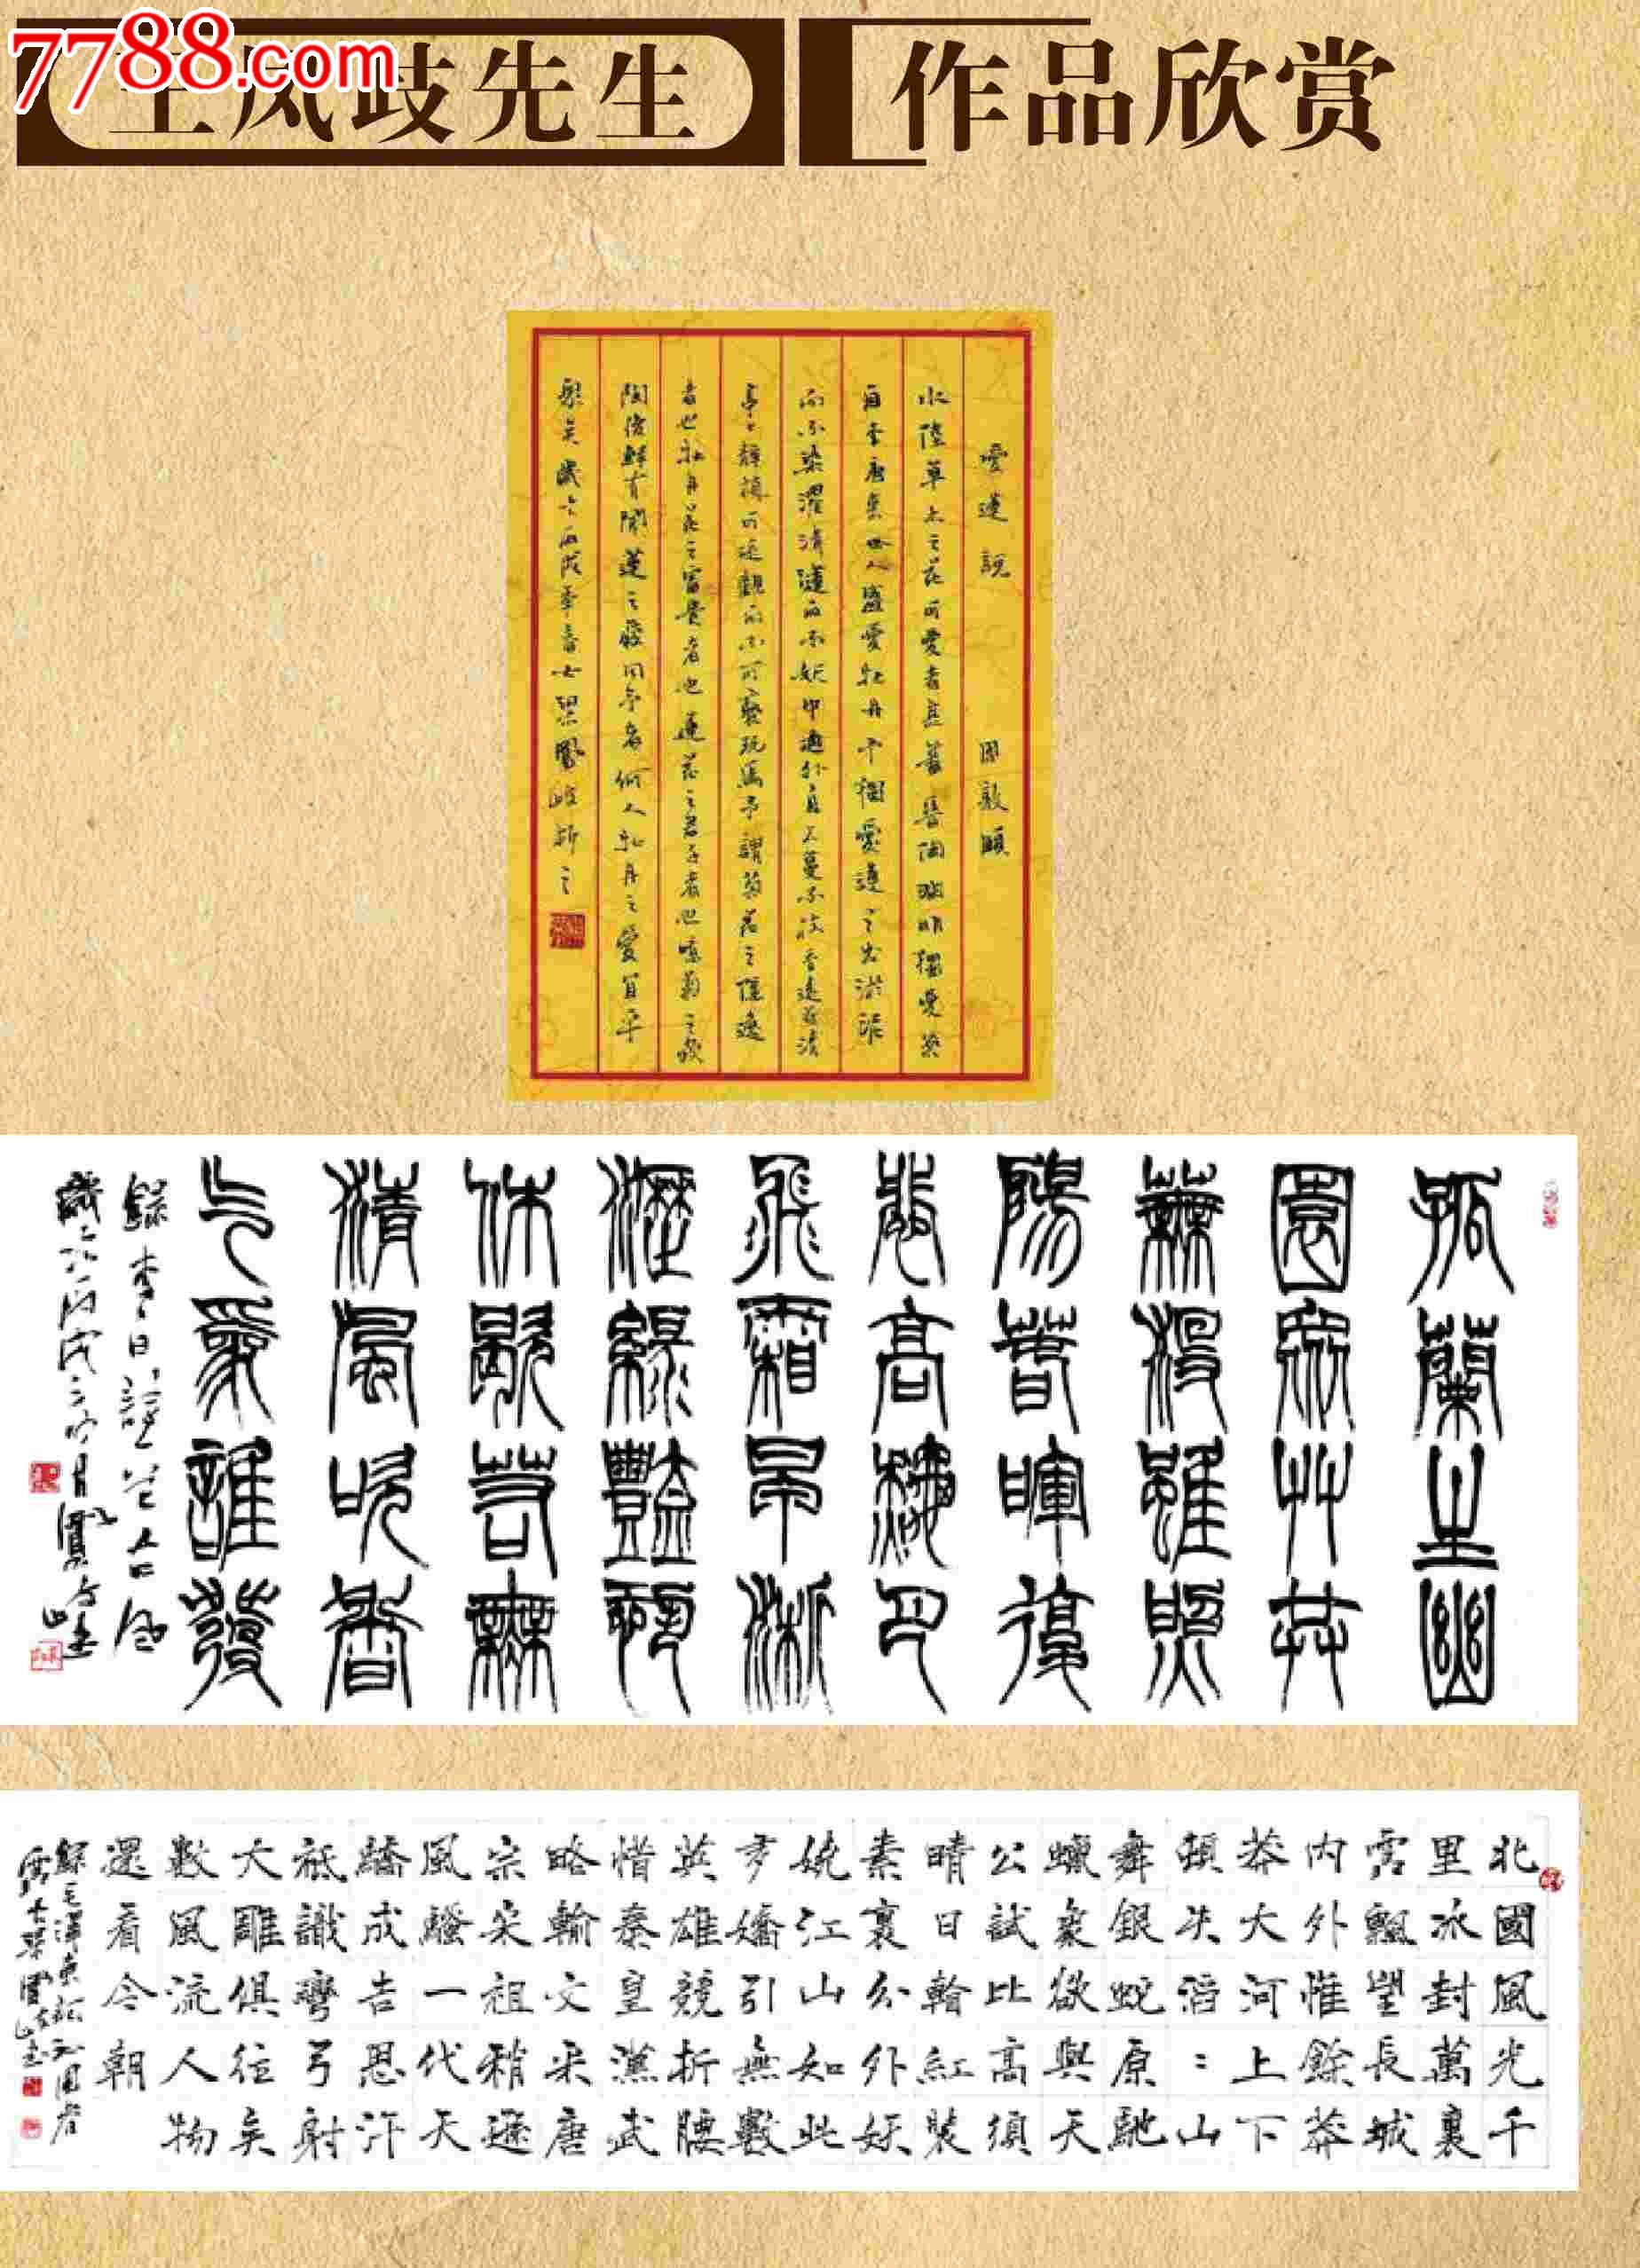 7788.com
王凤歧先生 作品欣赏
愛蓮說 周敦頤
水陸草木之花可愛者甚蕃晉陶淵明獨愛菊
自李唐來世人盛愛牡丹予獨愛蓮之出淤泥
而不染濯清漣而不妖中通外直不蔓不枝香遠益清
亭亭靜植可遠觀而不可褻玩焉予謂菊花之隱逸
者也牡丹花之富貴者也蓮花之君子者也噫菊之愛
陶後鮮有聞蓮之愛同予者何人牡丹之愛宜乎
眾矣歲次丙戌年
孤蘭生幽
園眾艸共
蕪沒雖照
陽春暉復
悲高穐月
飛霜早淅
瀝綠豔恐
休歇若無
清風吹香
气為誰發
錄李白詩
歲次丙戌
北國風光千
里冰封萬裏
雪飄望長城
內外惟餘莽
莽大河上下
頓失滔:山
舞銀蛇原馳
蠟象欲與天
公試比高須
晴日輪紅裝
素裹分外妖
嬈江山如此
多嬌引無數
英雄競折腰
惜秦皇漢武
略輸文采唐
宗宋祖稍遜
風騷一代天
驕成吉思汗
祗識彎弓射
大雕俱往矣
數風流人物
還看今朝
錄毛澤東詞沁園春